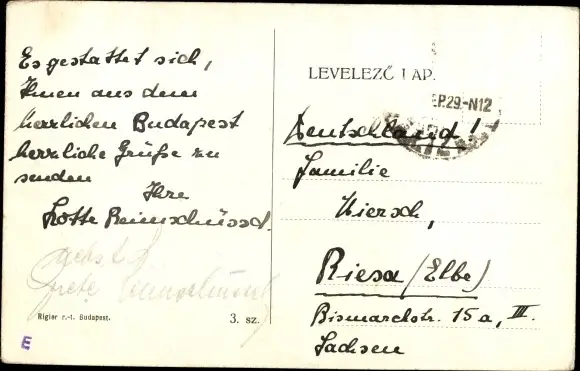 Es gestattet sich,
Ihnen aus dem
herrlichen Budapest
herzliche Grüße zu
senden
Ihre
Lotte
Rigler r.-t. Budapest.
3. sz.
E
LEVELEZŐ LAP.
EP.29.-N12
Deutschland!
Familie
Hiersch,
Riesa (Elbe)
Bismarckstr. 15a, III.
Sachsen